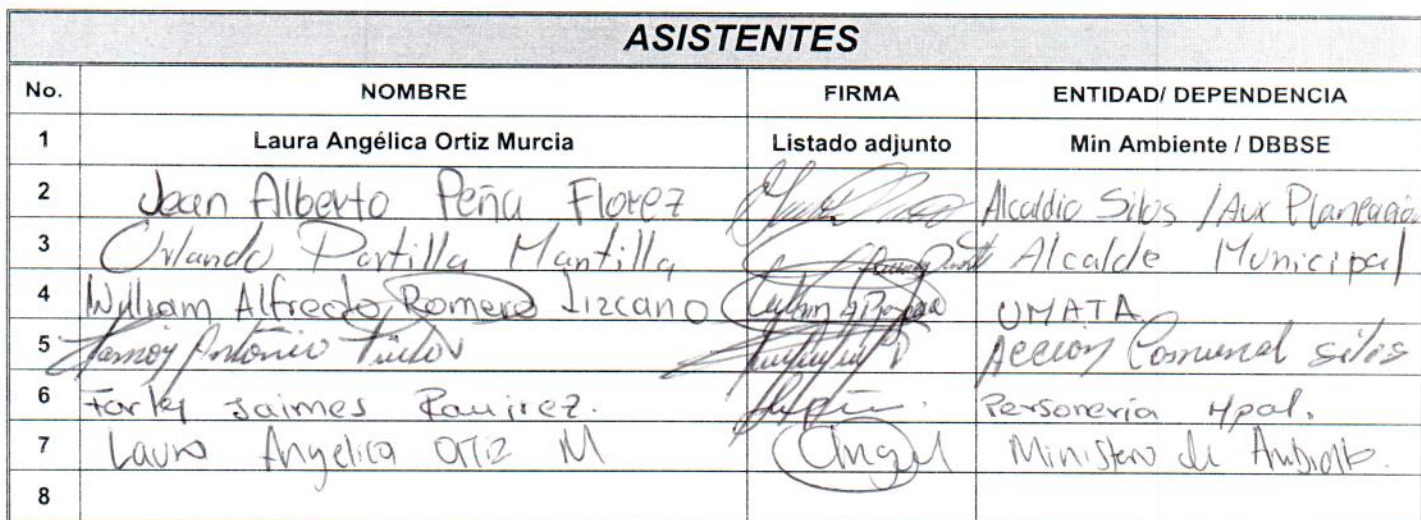 ASISTENTES
No. NOMBRE FIRMA ENTIDAD/ DEPENDENCIA
1 Laura Angélica Ortiz Murcia Listado adjunto Min Ambiente / DBBSE
2 Jean Alberto Peña Florez Alcaldio Silos / Aux Planeación
3 Orlando Portilla Mantilla Alcalde Municipal
4 William Alfredo Romero Lizcano UMATA
5 Antonio Accion Comunal silos
6 Farley Jaimes Ramirez. Personería Mpal.
7 Laura Angelica Ortiz M Angel Ministerio de Ambiente.
8